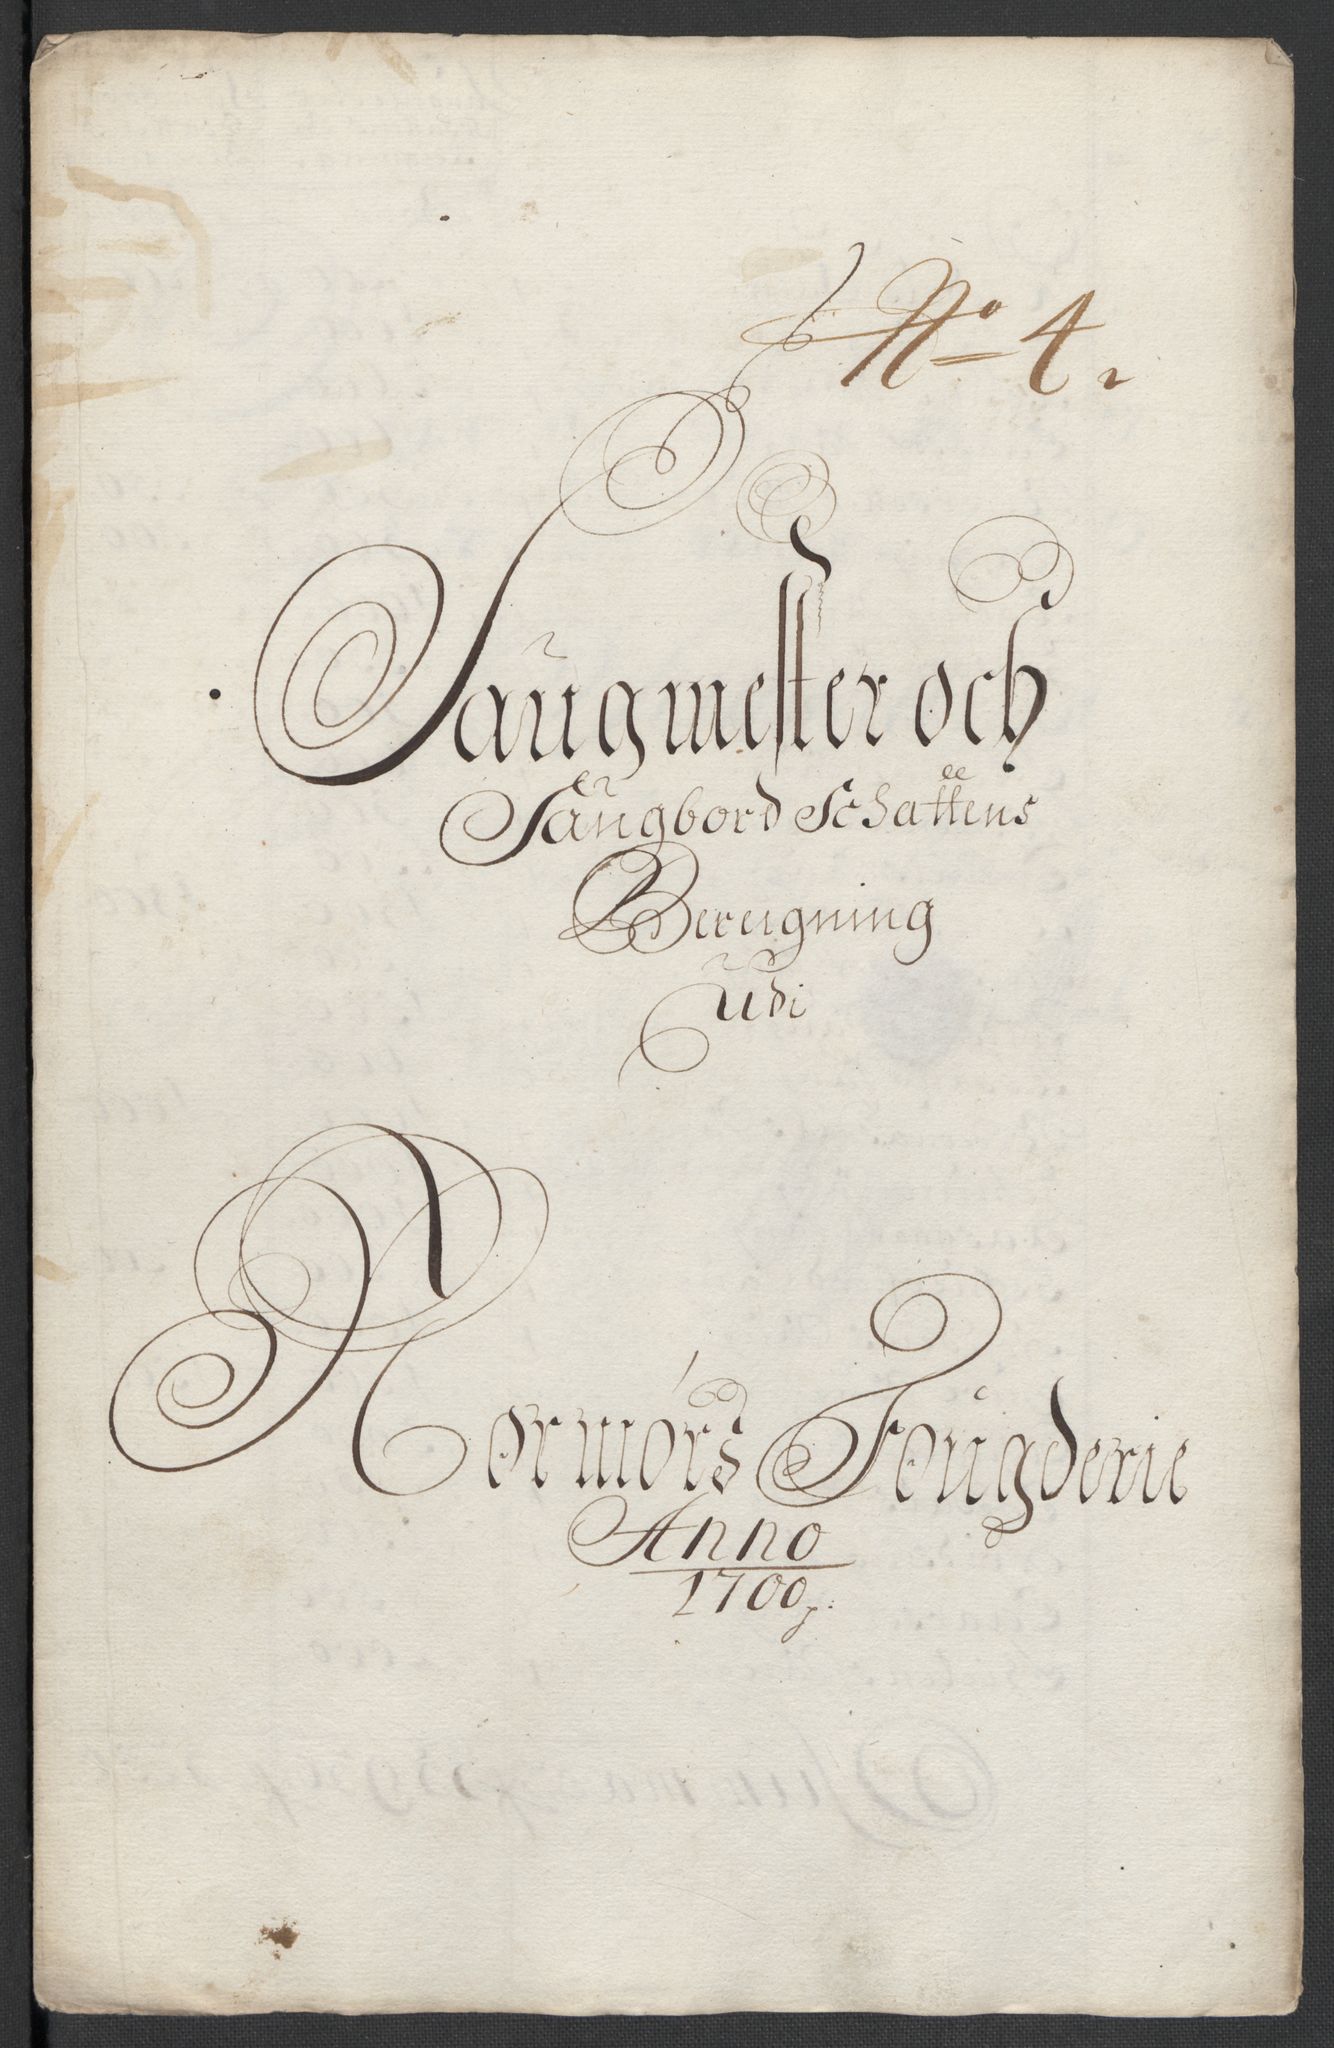 No 4.
Saugmester och
Saugbord Schattens
Beregning
Udi
Normørs Fougderie
Anno
1700